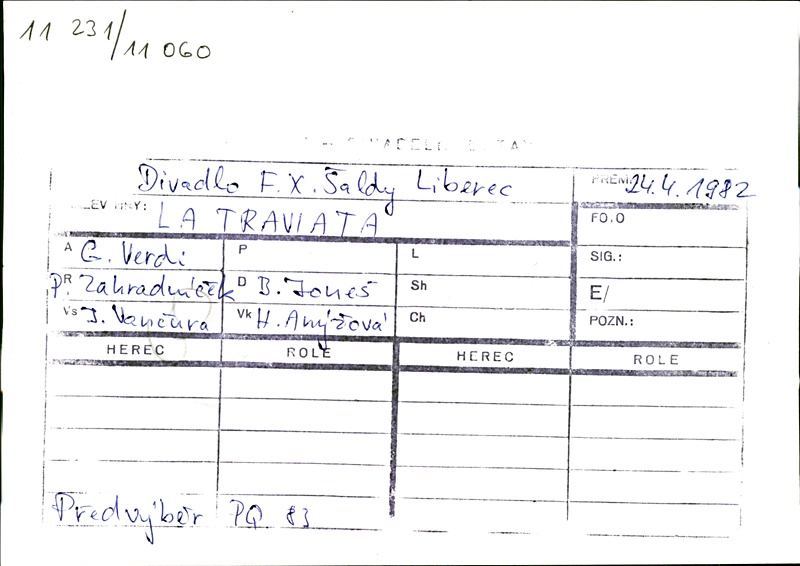 11 231/11 060
Divadlo F. X. Šaldy Liberec
PREM. 24.4.1982
LA TRAVIATA
FO.O
A G. Verdi P L
SIG.:
P. R Zahradníček D B. Joneš Sh
E/
Vs J. Vančura Vk H. Anýžová Ch
POZN.:
HEREC ROLE HEREC ROLE
Předvýběr PQ 83